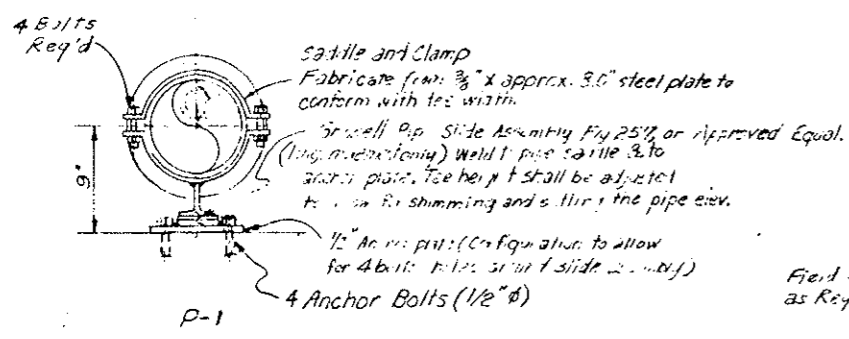 4 Bolts
Req'd
Saddle and Clamp
Fabricate from 3/8" x approx. 3.0" steel plate to
conform with tee width.
Pip Slide Assembly Fig 257, or Approved Equal.
only) Weld t pipe saddle & to
anchor plate. Tee height shall be adjusted
for shimming and the pipe elev.
9"
1/2" Anchor plate (Configuration to allow
for 4 bolt holes slide)
4 Anchor Bolts (1/2" Ø)
P-1
Field
as Req